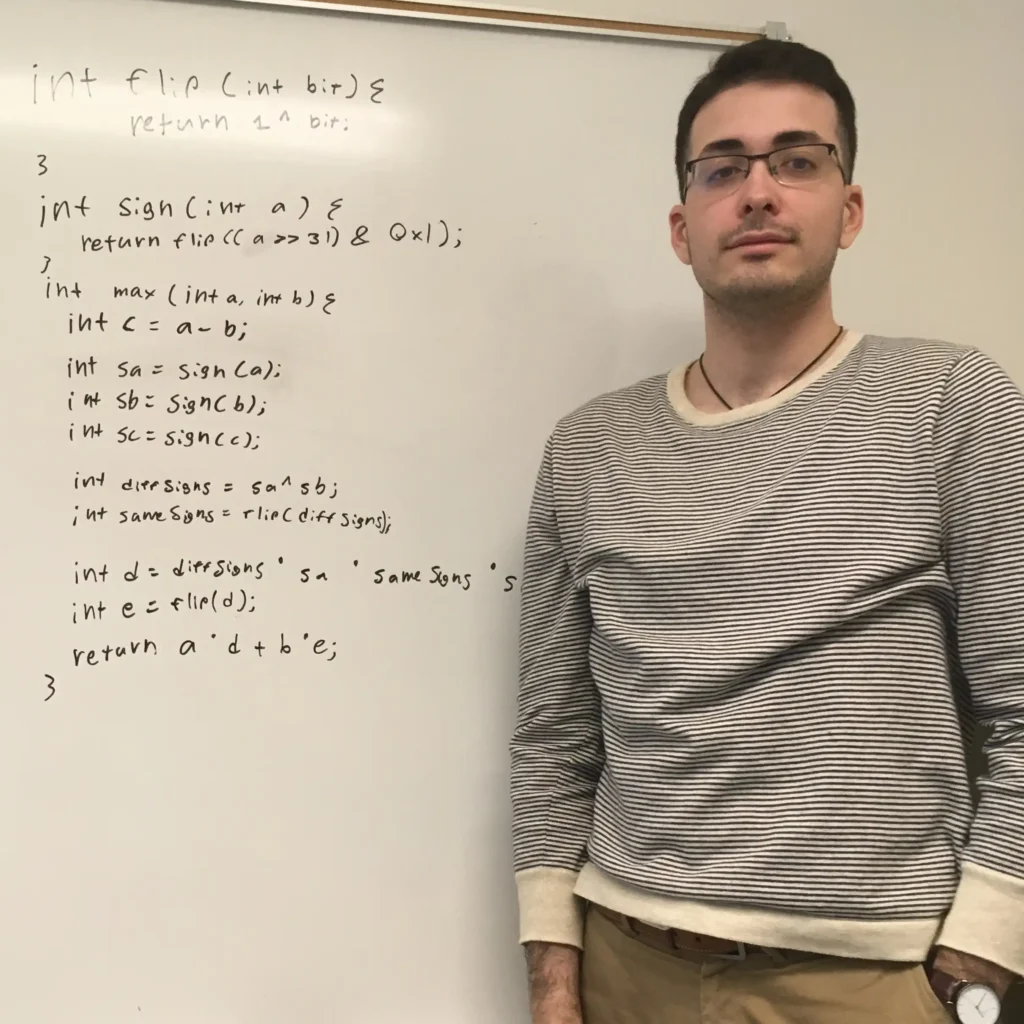 int flip (int bit) {
return 1^ bit;
}
int sign (int a) {
return flip (( a >> 31) & 0x1);
}
int max (int a, int b) {
int c = a - b;
int sa = sign (a);
int sb = sign( b);
int sc = sign (c);
int diffSigns = sa ^ sb;
int sameSigns = flip( diffSigns);
int d = diffSigns * sa * sameSigns * s
int e = flip(d);
return a * d + b * e;
}